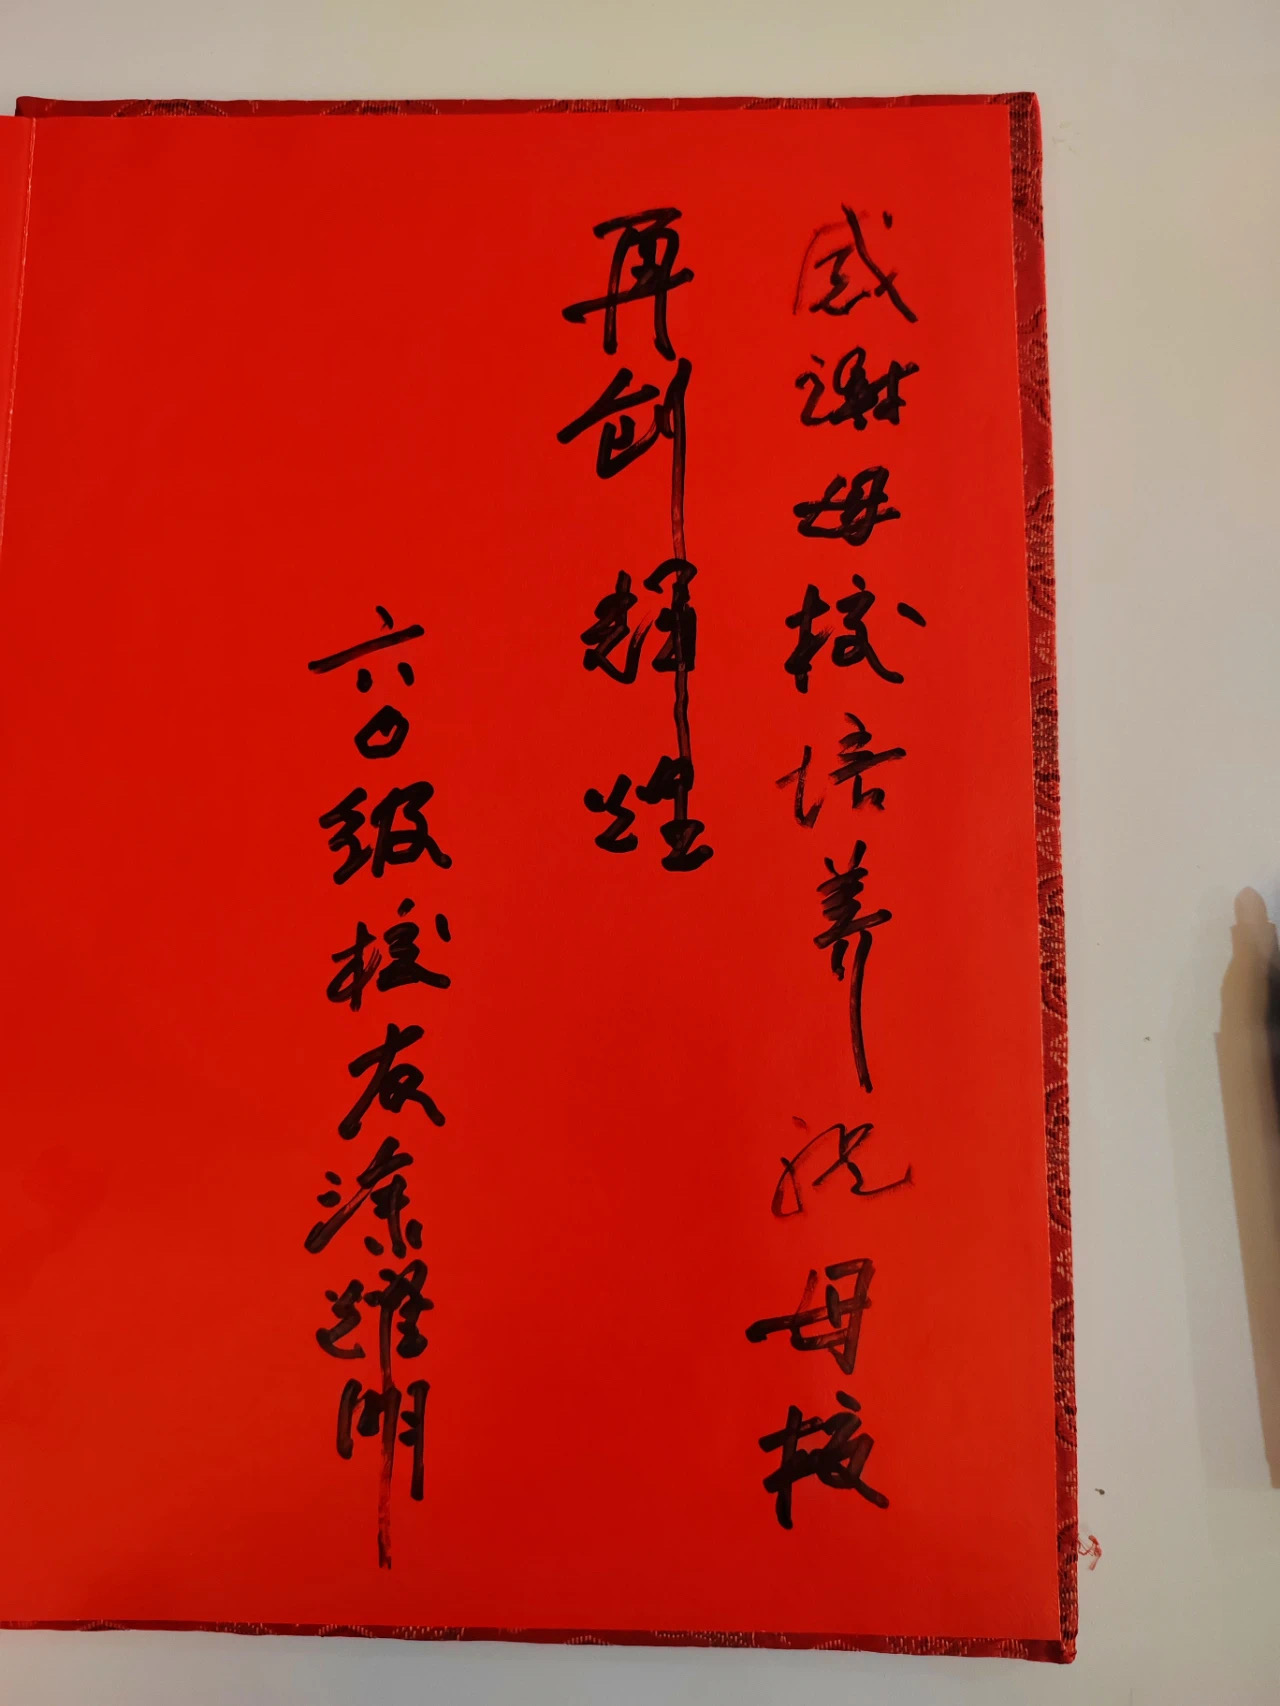 感谢母校培养祝母校
再创辉煌
六〇级校友涂耀明